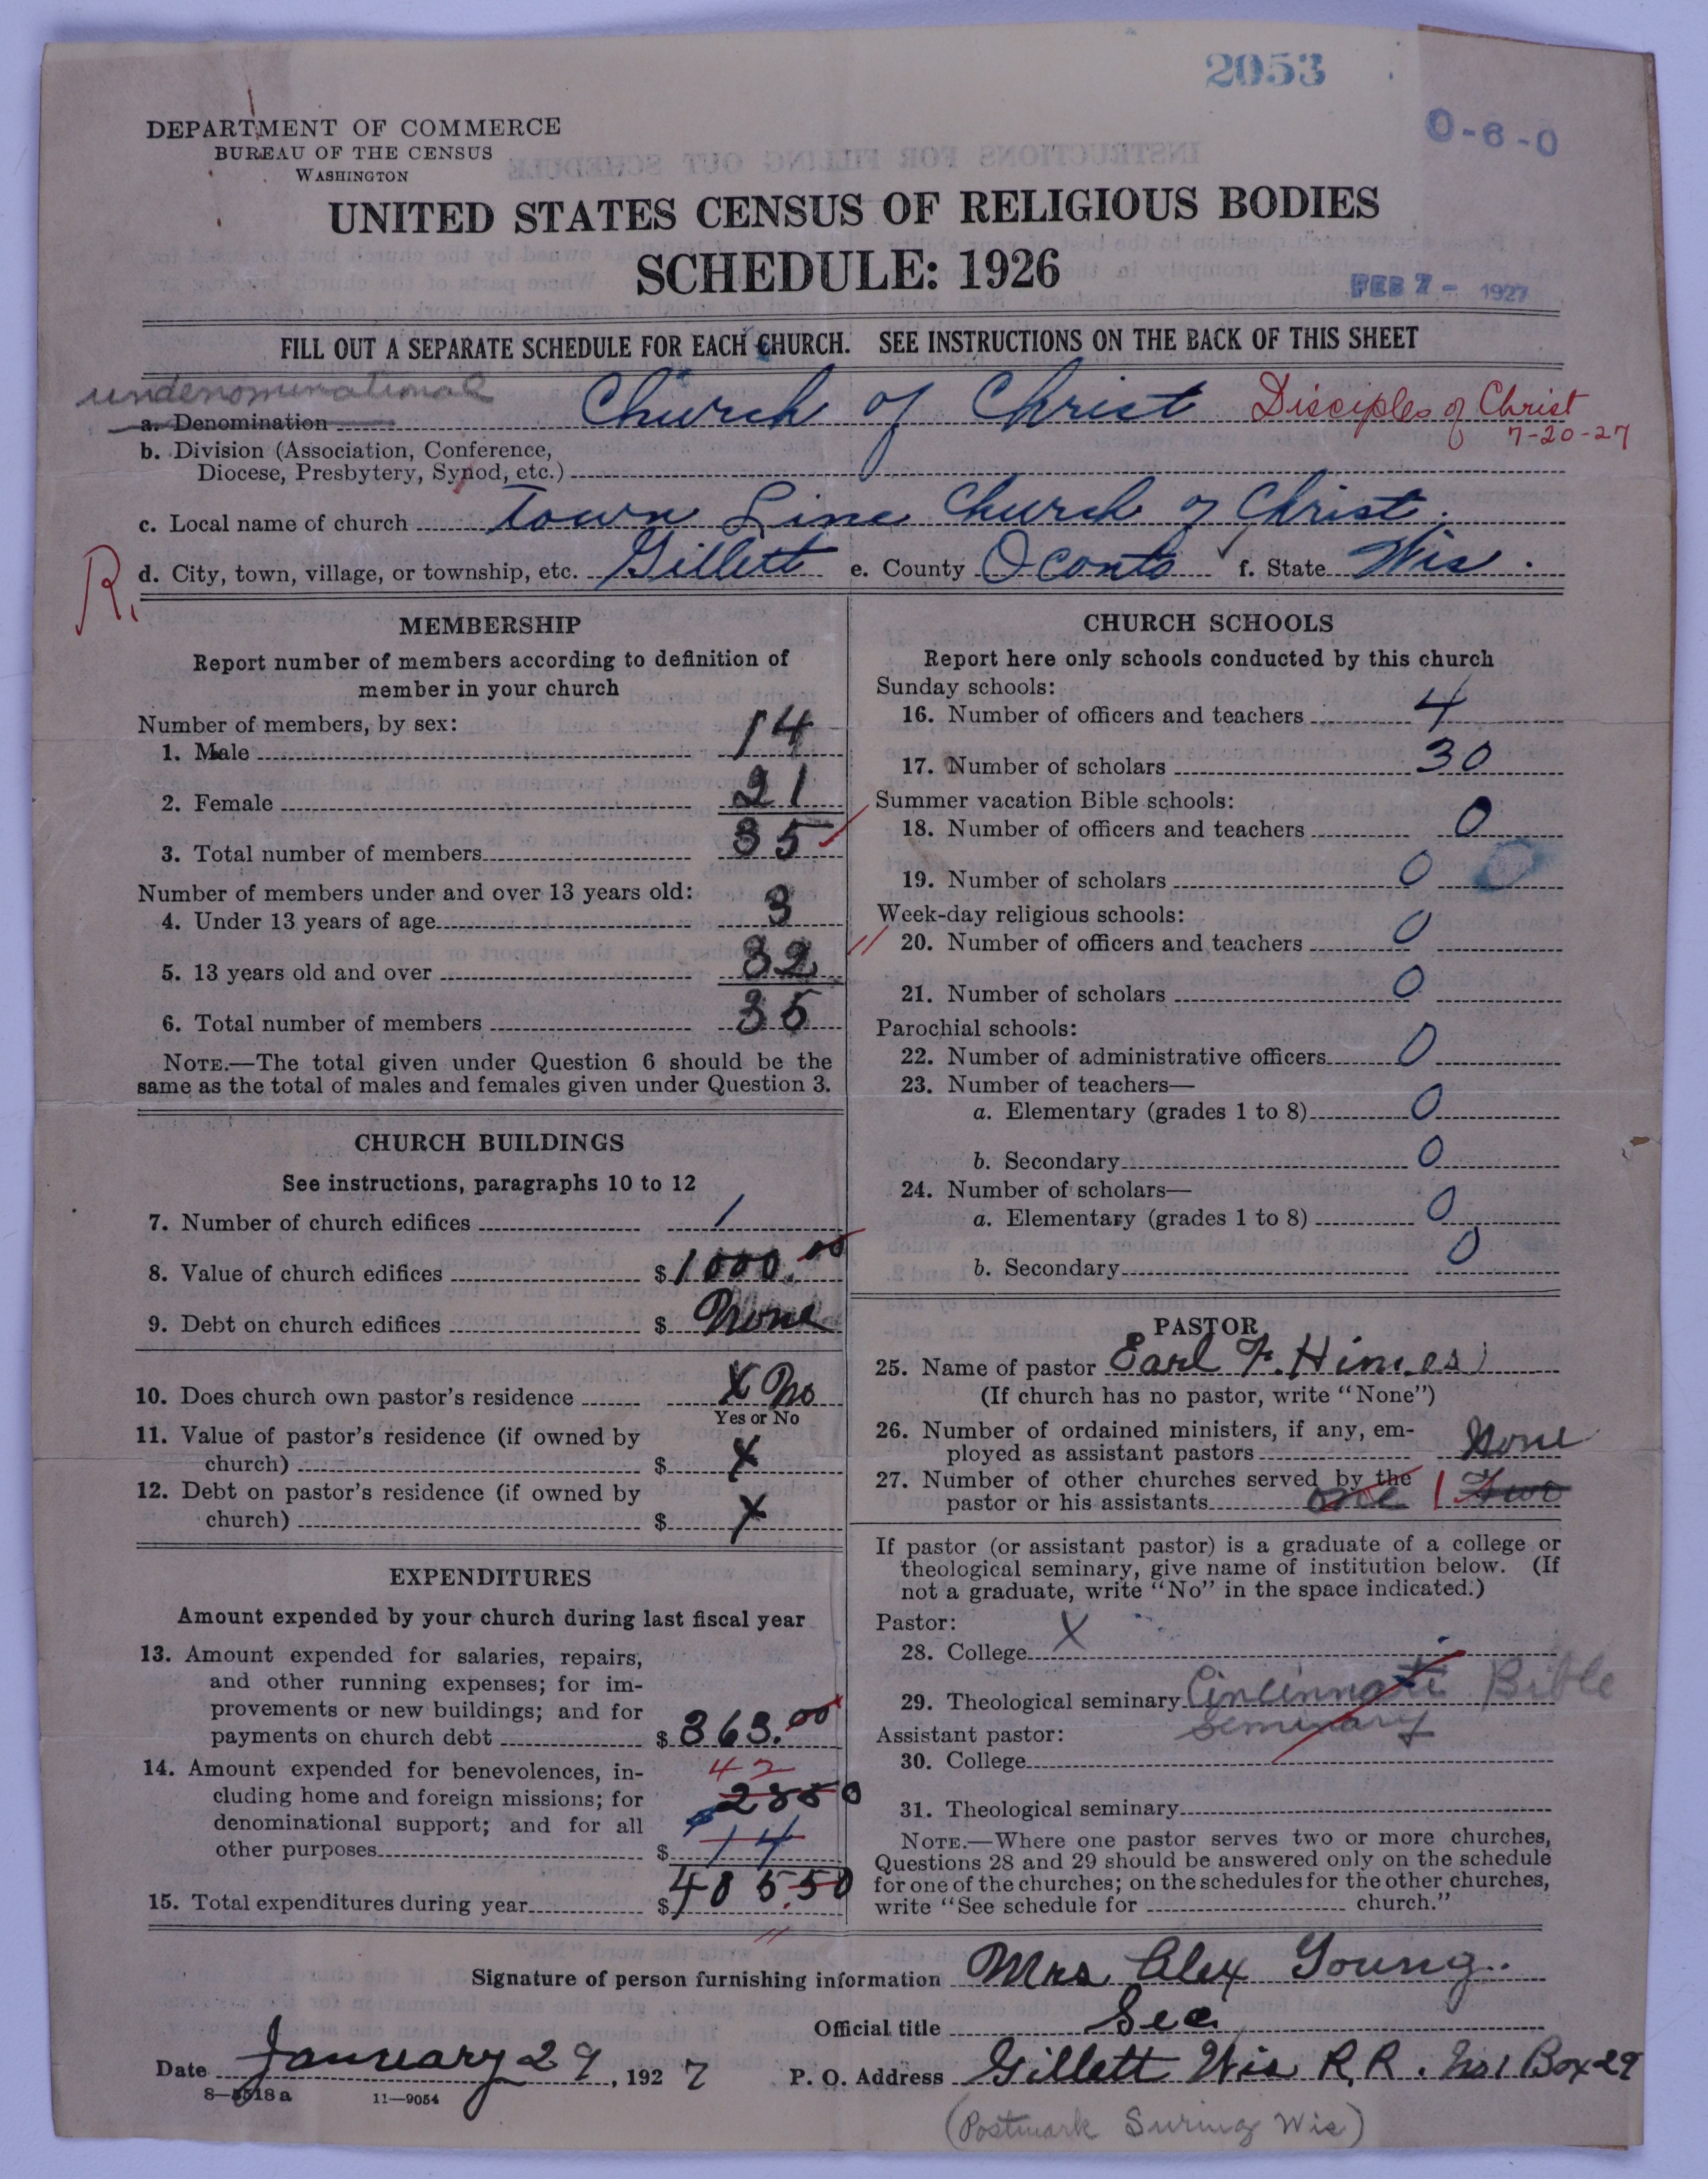 2053
0-6-0
DEPARTMENT OF COMMERCE
BUREAU OF THE CENSUS
WASHINGTON
UNITED STATES CENSUS OF RELIGIOUS BODIES
SCHEDULE: 1926
FEB 7 - 1927
FILL OUT A SEPARATE SCHEDULE FOR EACH CHURCH. SEE INSTRUCTIONS ON THE BACK OF THIS SHEET
undenominational
a. Denomination Church of Christ Disciples of Christ
7-20-27
b. Division (Association, Conference,
Diocese, Presbytery, Synod, etc.)
c. Local name of church Town Line Church of Christ.
R. d. City, town, village, or township, etc. Gillett e. County Oconto f. State Wis.
MEMBERSHIP
Report number of members according to definition of
member in your church
Number of members, by sex:
1. Male 14
2. Female 21
3. Total number of members 35
Number of members under and over 13 years old:
4. Under 13 years of age 3
5. 13 years old and over 32
6. Total number of members 35
NOTE.—The total given under Question 6 should be the
same as the total of males and females given under Question 3.
CHURCH BUILDINGS
See instructions, paragraphs 10 to 12
7. Number of church edifices 1
8. Value of church edifices $1000.00
9. Debt on church edifices $ None
10. Does church own pastor's residence X No
Yes or No
11. Value of pastor's residence (if owned by
church) $ X
12. Debt on pastor's residence (if owned by
church) $ X
EXPENDITURES
Amount expended by your church during last fiscal year
13. Amount expended for salaries, repairs,
and other running expenses; for im-
provements or new buildings; and for
payments on church debt $ 363.00
14. Amount expended for benevolences, in- 42
cluding home and foreign missions; for 2850
denominational support; and for all
other purposes $ 14
15. Total expenditures during year $ 405.50
CHURCH SCHOOLS
Report here only schools conducted by this church
Sunday schools:
16. Number of officers and teachers 4
17. Number of scholars 30
Summer vacation Bible schools:
18. Number of officers and teachers 0
19. Number of scholars 0 0
Week-day religious schools:
20. Number of officers and teachers 0
21. Number of scholars 0
Parochial schools:
22. Number of administrative officers 0
23. Number of teachers—
a. Elementary (grades 1 to 8) 0
b. Secondary 0
24. Number of scholars—
a. Elementary (grades 1 to 8) 0
b. Secondary 0
PASTOR
25. Name of pastor Earl F. Himes
(If church has no pastor, write "None")
26. Number of ordained ministers, if any, em-
ployed as assistant pastors None
27. Number of other churches served by the
pastor or his assistants one 1 Two
If pastor (or assistant pastor) is a graduate of a college or
theological seminary, give name of institution below. (If
not a graduate, write "No" in the space indicated.)
Pastor:
28. College X
29. Theological seminary Cincinnati Bible
Seminary
Assistant pastor:
30. College
31. Theological seminary
NOTE.—Where one pastor serves two or more churches,
Questions 28 and 29 should be answered only on the schedule
for one of the churches; on the schedules for the other churches,
write "See schedule for church."
Signature of person furnishing information Mrs Alex Young.
Official title Sec
Date January 29, 1927 P. O. Address Gillett Wis R.R. No 1 Box 29
8—5518a 11—9054
(Postmark Suring Wis)